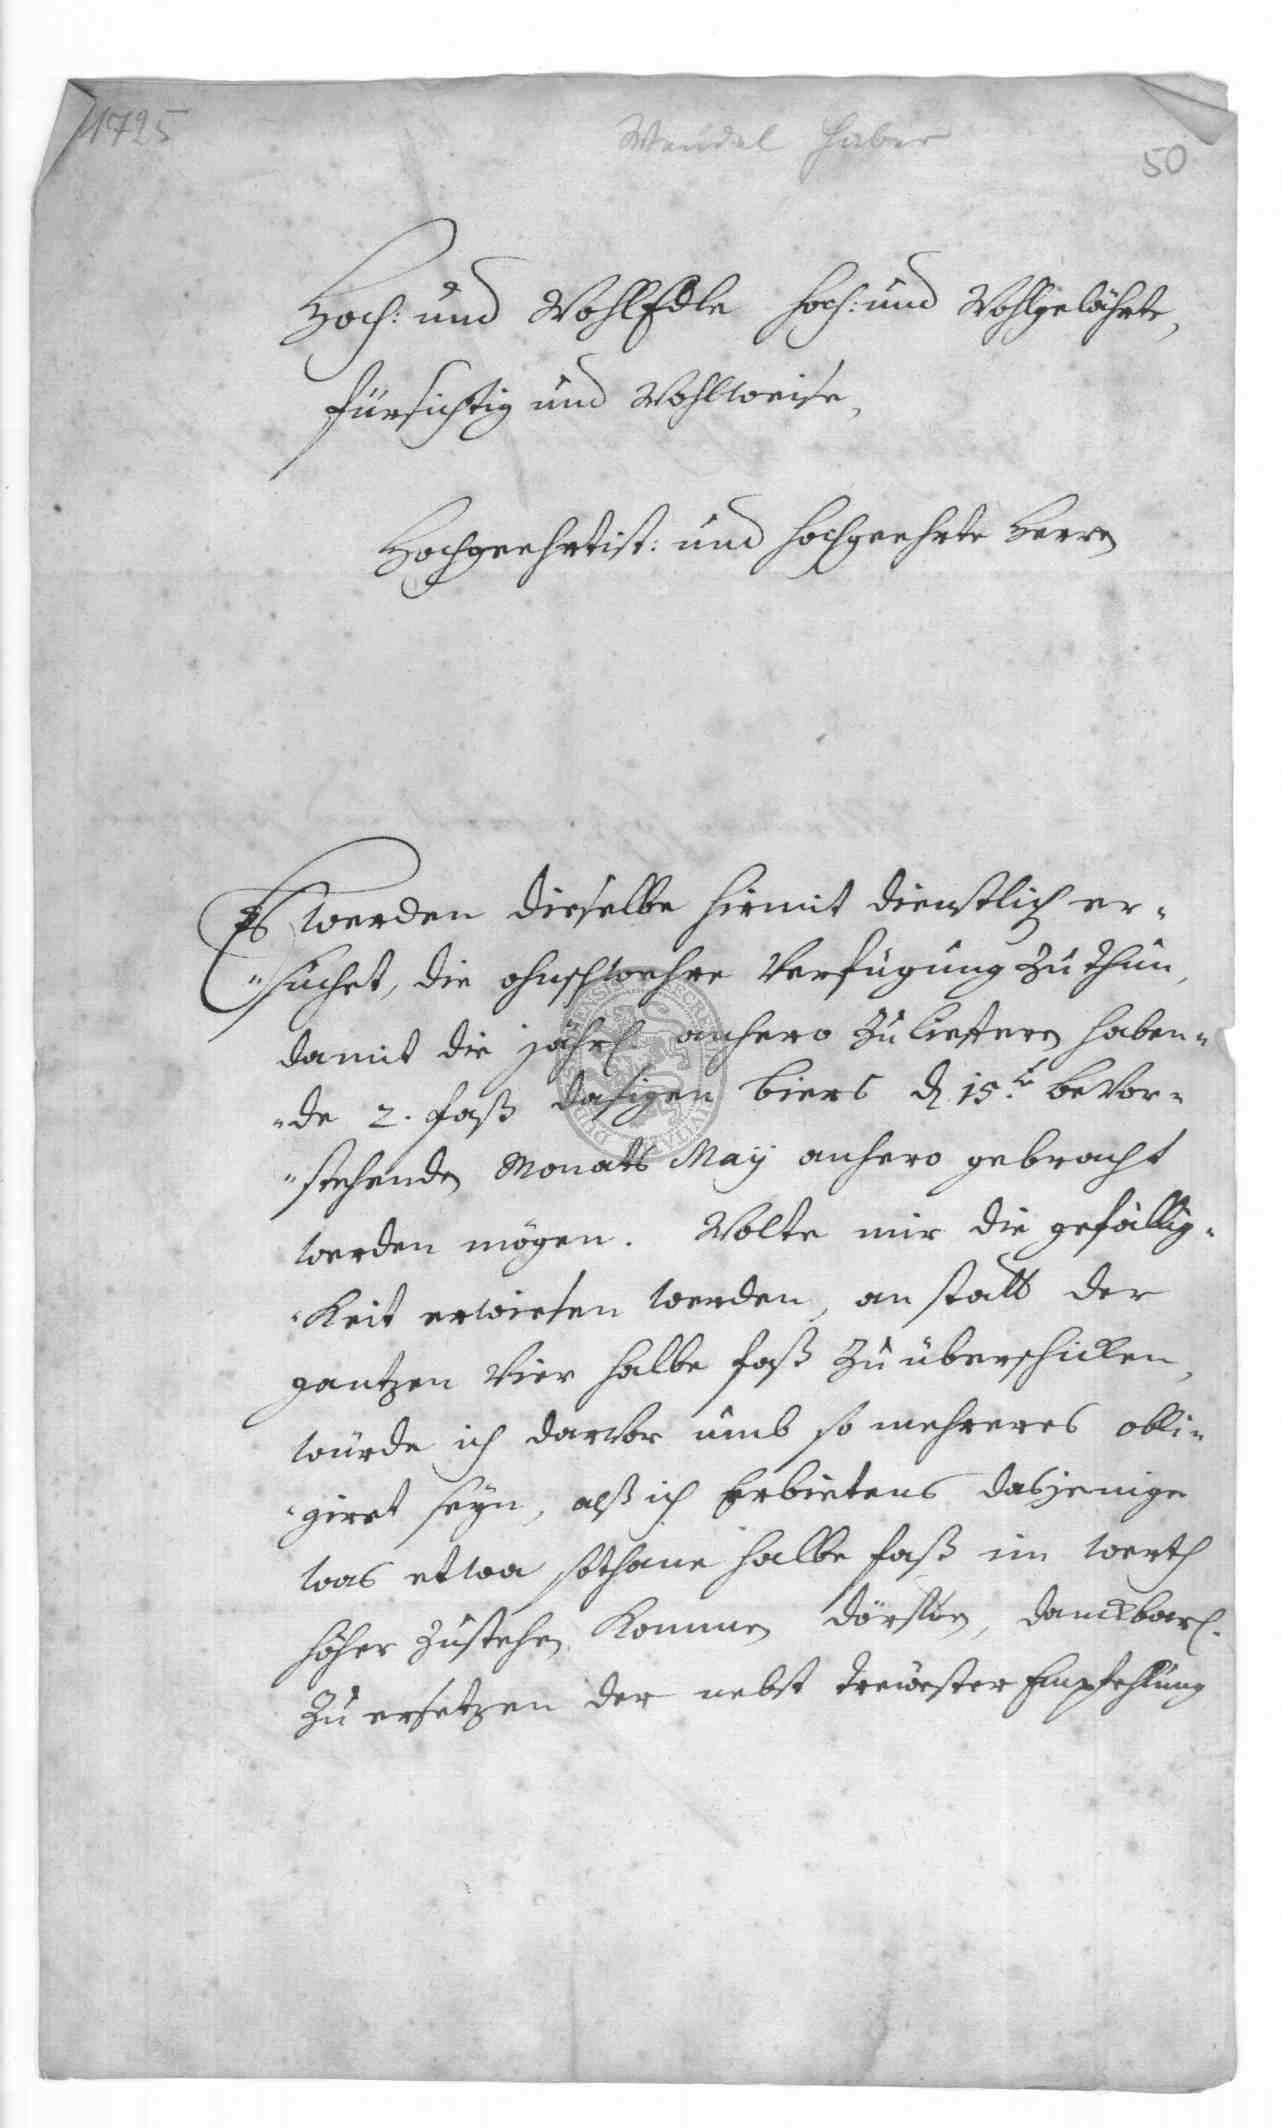 1725
Wendel Haber
50
Hoch: und WohlEdle Hoch: und Wohlgelährte,
fürsichtig und Wohlweise,
Hochgeehrtist: und hochgeehrte Herrn
Es werden dieselbe hirmit dienstlich er-
suchet, die ohnschwehre Verfügung zu thun,
damit die jährl. anhero zu liefferen haben-
de 2. faß dasigen biers d 15te bevor-
stehenden Monats May anhero gebracht
werden mögen. Wolte mir die gefällig-
keit erwiesen werden, anstatt der
gantzen Vier halbe faß zu überschicken,
würde ich darvor umb so mehreres obli-
giret seyn, alß ich Erbietens dasjenige
was etwa sothane halbe faß im werth
höher zustehen kommen dörften, danckbarl.
zu ersetzen der nebst trewester Empfehlung